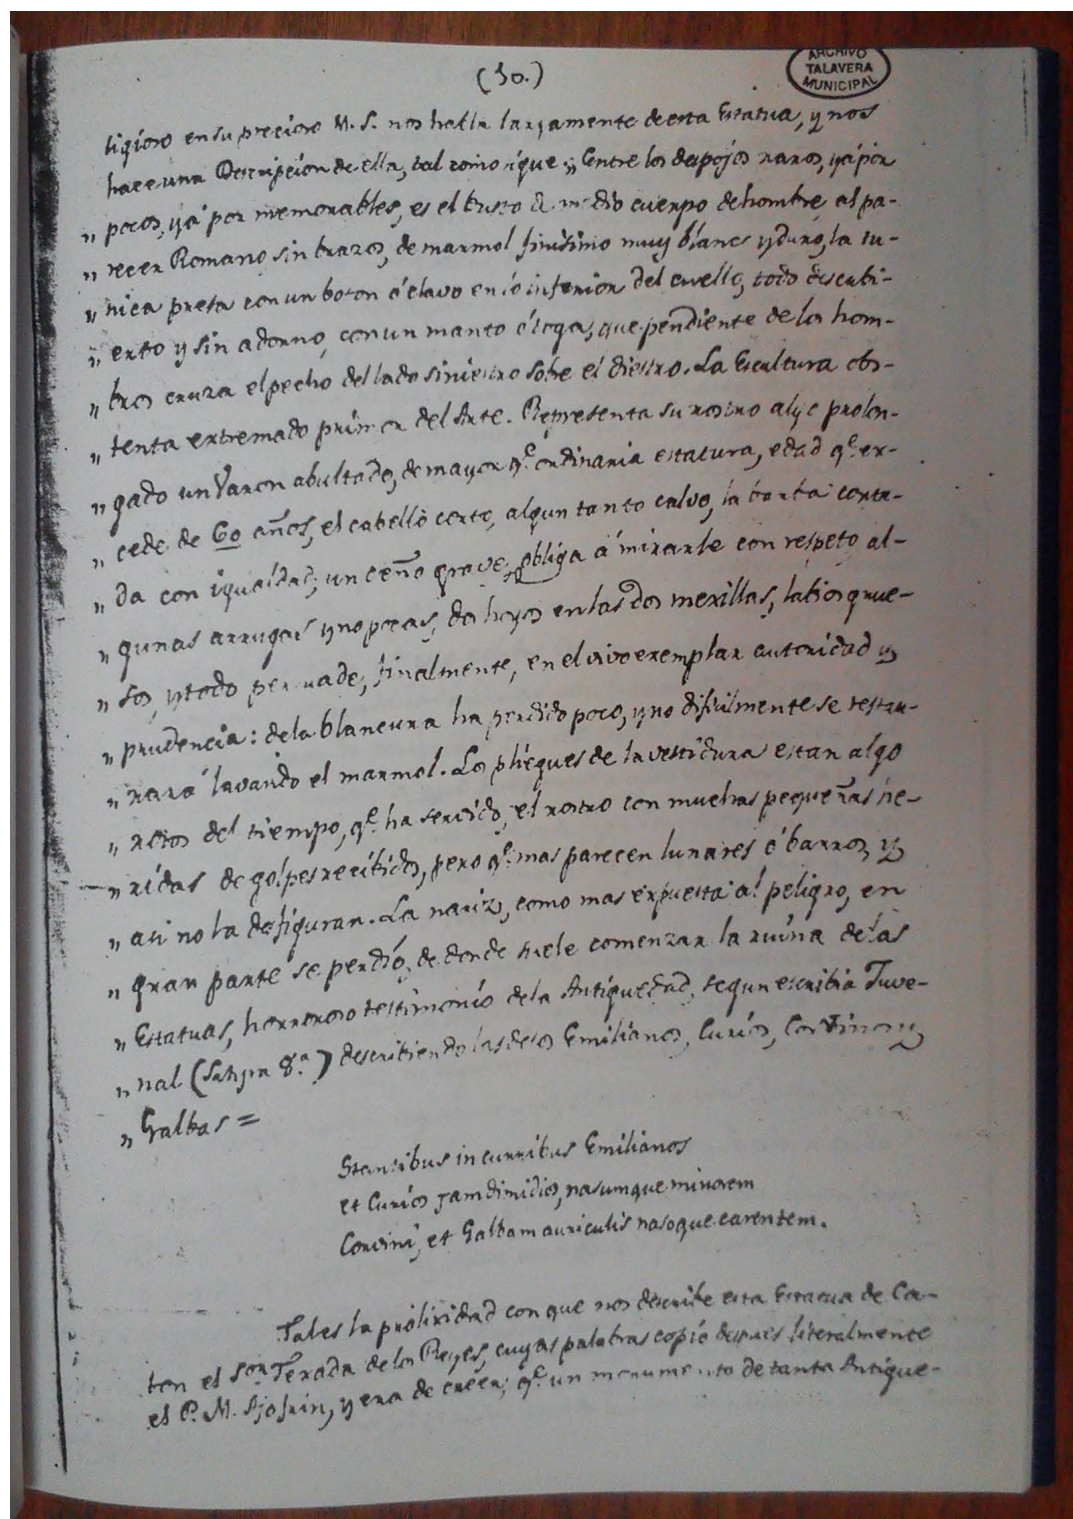 (10.)
ARCHIVO
TALAVERA
MUNICIPAL
ligioso en su precioso M. S. nos habla largamente de esta Estatua, y nos
hace una Descripcion de ella, tal como sigue „ Entre los despojos raros, ya por
„ pocos, ya por memorables, es el busto de medio cuerpo de hombre al pa-
„ recer Romano sin brazos, de marmol finisimo muy blanco y duro, la tu-
„ nica presa con un boton ó clavo en lo inferior del cuello, todo descubi-
„ erto y sin adorno, con un manto ó toga, que pendiente de los hom-
„ bros cruza el pecho del lado siniestro sobre el diestro. La Escultura obs-
„ tenta extremado primor del Arte. Representa su rostro algo prolon-
„ gado un Varon abultado, de mayor q.e ordinaria estatura, edad q.e ex-
„ cede de 60 años, el cabello corto, algun tanto calvo, la barba corta-
„ da con igualdad; un ceño grave, q obliga á mirarle con respeto, al-
„ gunas arrugas y no pocas, dos hoyos en las dos mexillas, labios grue-
„ sos, y todo persuade, finalmente, en el vivo exemplar autoridad y
„ prudencia: de la blancura ha perdido poco, y no dificilmente se restau-
„ rará lavando el marmol. Los pliegues de la vestidura estan algo
„ rotos del tiempo, q.e ha servido, el rostro con muchas pequeñas he-
„ ridas de golpes recibidos, pero q.e mas parecen lunares ó barros, y
„ asi no la desfiguran. La nariz, como mas expuesta al peligro, en
„ gran parte se perdió, de donde suele comenzar la ruina de las
„ Estatuas, horroroso testimonio de la Antiguedad, segun escribia Juve-
„ nal (Satyra 8.a) describiendo las de los Emilianos, Curios, Corvinos y
„ Galbas =
Stantibus in curribus Emilianos
et Curios jam dimidios, nasumque minorem
Corvini, et Galbam auriculis nasoque carentem.
Tal es la prolixidad con que nos describe esta Estatua de Ca-
ton el S.or Texada de los Reyes, cuyas palabras copió despues literalmente
el P. M. Ajofrin, y era de creer, q.e un monumento de tanta Antigue-